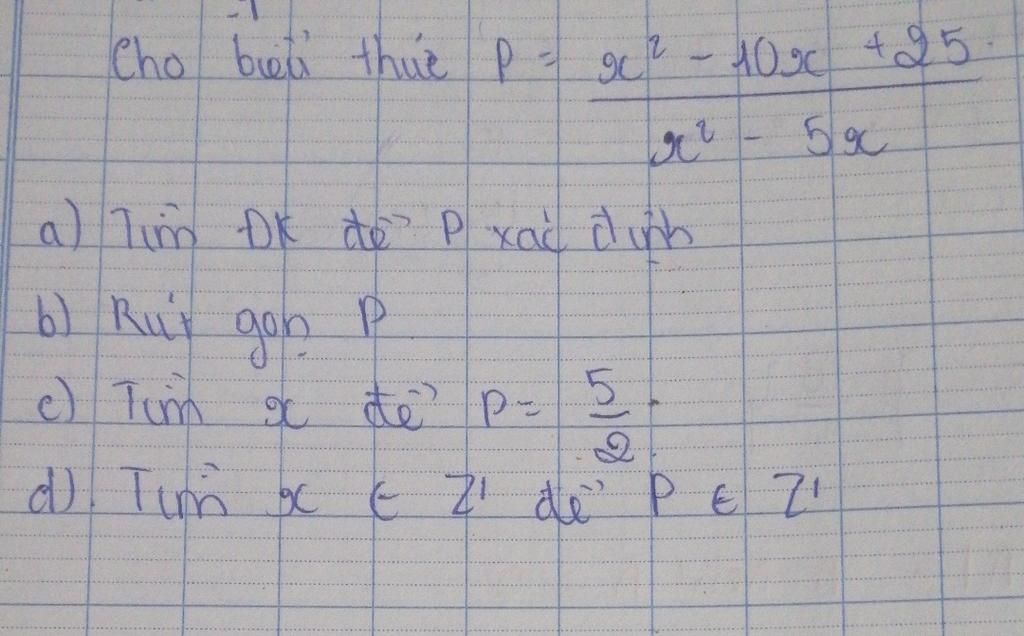 Cho biểu thức P = x² - 10x + 25 / x² - 5x
a) Tìm ĐK để P xác định
b) Rút gọn P
c) Tìm x để P = 5/2.
d). Tìm x ∈ Z để P ∈ Z